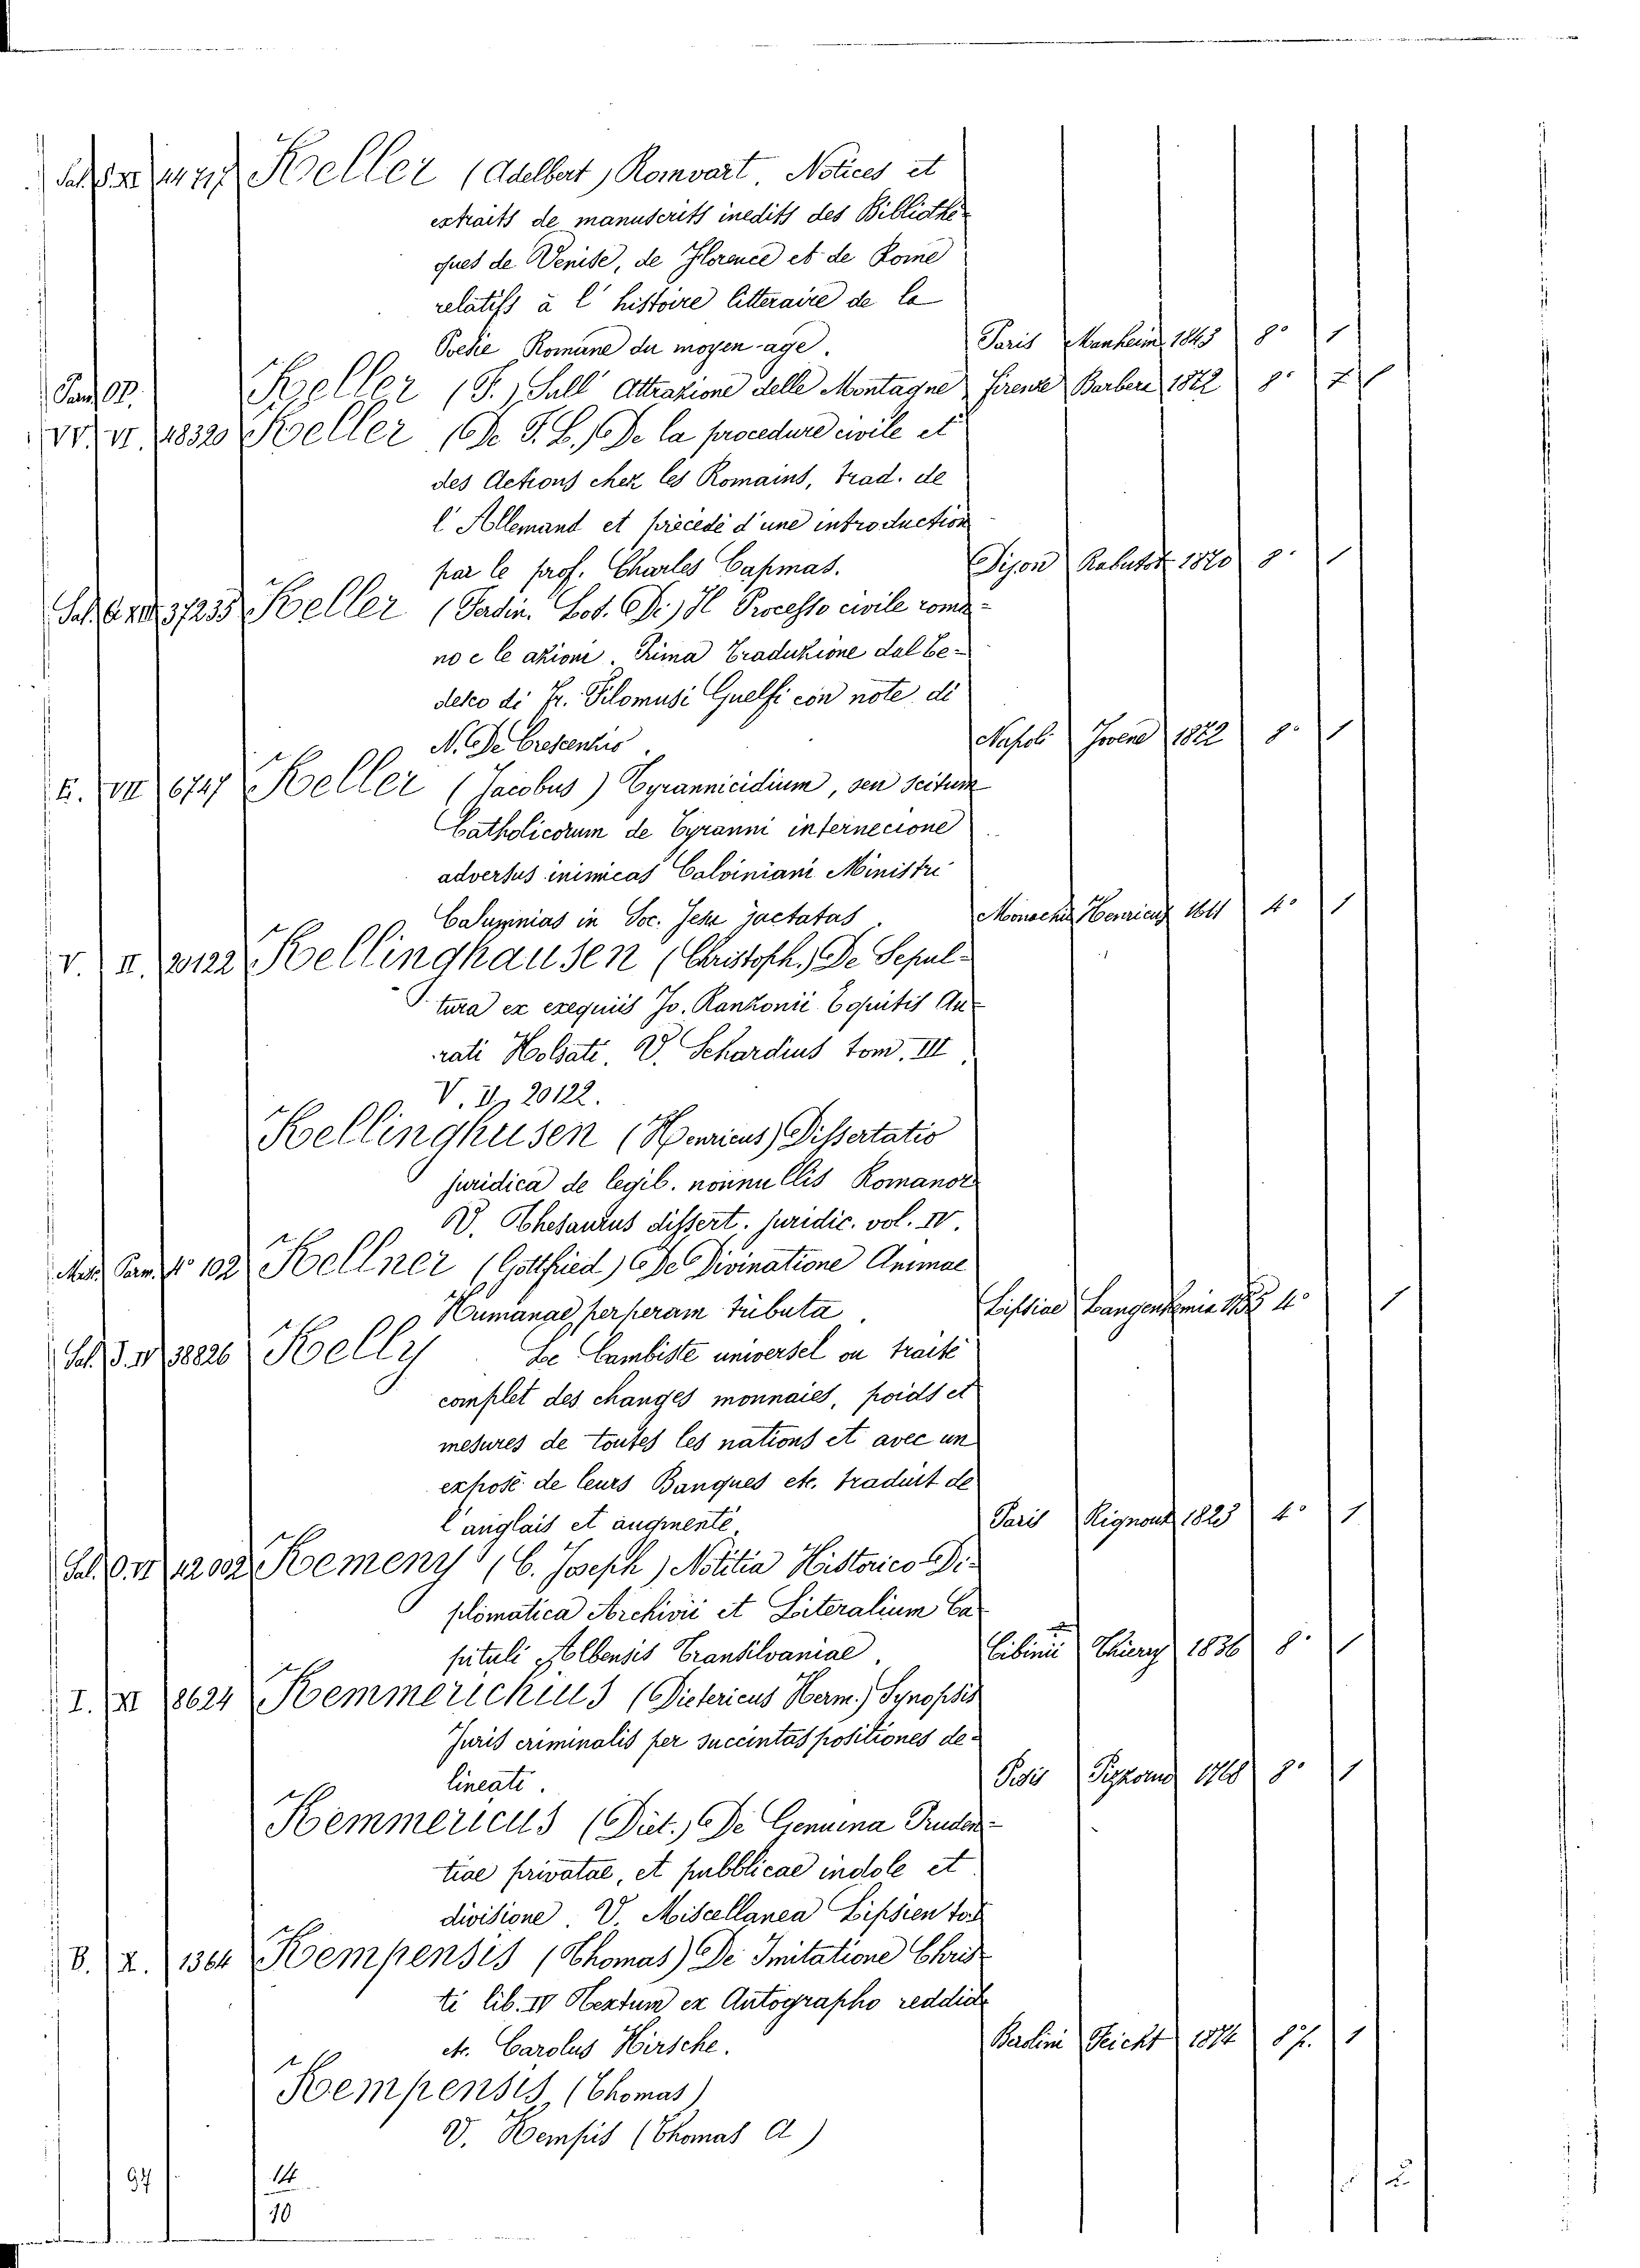 Keller (Adelbert) Romvart. Notices et
extraits de manuscrits inedits des Bibliothe
ques de Venise, de Florence et de Rome
relatifs à l'histoire litteraire de la
Poesie Romane du moyen-age. Paris Manheim 1843 8° 1
Keller (F.) Sull' Attrazione delle Montagne Firenze Barbera 1872 8°
V. VI. 18320 Keller (De F. L.) De la procedure civile et
des Actions chez les Romains, trad. de
l'Allemand et précédé d'une introduction
par le prof. Charles Capmas. Dijon Rabutot 1870 8° 1
37235 Keller (Ferdin. Lod. De) Il Processo civile roma-
no e le azioni. Prima Traduzione dal te-
desco di Fr. Filomusi Guelfi con note di
N. De Crescenzio. Napoli Jovene 1872 8° 1
E. VII 6747 Keller (Jacobus) Tyrannicidium, seu scitum
Catholicorum de Tyranni internecione
adversus inimicas Calviniani Ministri
Calumnias in Soc. Jesu jactatas. Monachii Henricus 1611 4° 1
V. II. 20122 Kellinghausen (Christoph.) De Sepul-
tura ex exequiis Jo. Ranzonii Equitis Au-
rati Holsati. V. Schardius tom. III
V. II, 20122.
Kellinghusen (Henricus) Dissertatio
juridica de legib. nonnullis Romanor
V. Thesaurus dissert. juridic. vol. IV.
102 Kellner (Gottfied) De Divinatione Animae
Humanae, perperam tributa. Lipsiae 4° 1
38826 Kelly Le Cambiste universel ou traité
complet des changes monnaies, poids et
mesures de toutes les nations et avec un
exposé de leurs Banques etc. traduit de
l'anglais et augmenté. Paris Rignoux 1823 4° 1
Kemeny (C. Joseph) Notitia Historico Di-
plomatica Archivii et Literalium Ca
pituli Albensis Transilvaniae. Cibinii Thierry 1836 8° 1
I. XI 8624 Kemmerichius (Dietericus Herm.) Synopsis
Juris criminalis per succintas positiones de-
lineati. 8° 1
Kemmericus (Diet.) De Genuina Pruden-
tiae privatae, et pubblicae indole et
divisione. V. Miscellanea Lipsien to
B. X. 1364 Kempensis (Thomas) De Imitatione Chris
ti lib. IV Textum ex Autographo reddidit
etc. Carolus Hirsche. Berolini 1874 1
Kempensis (Thomas)
V. Kempis (Thomas A)
94 14
10